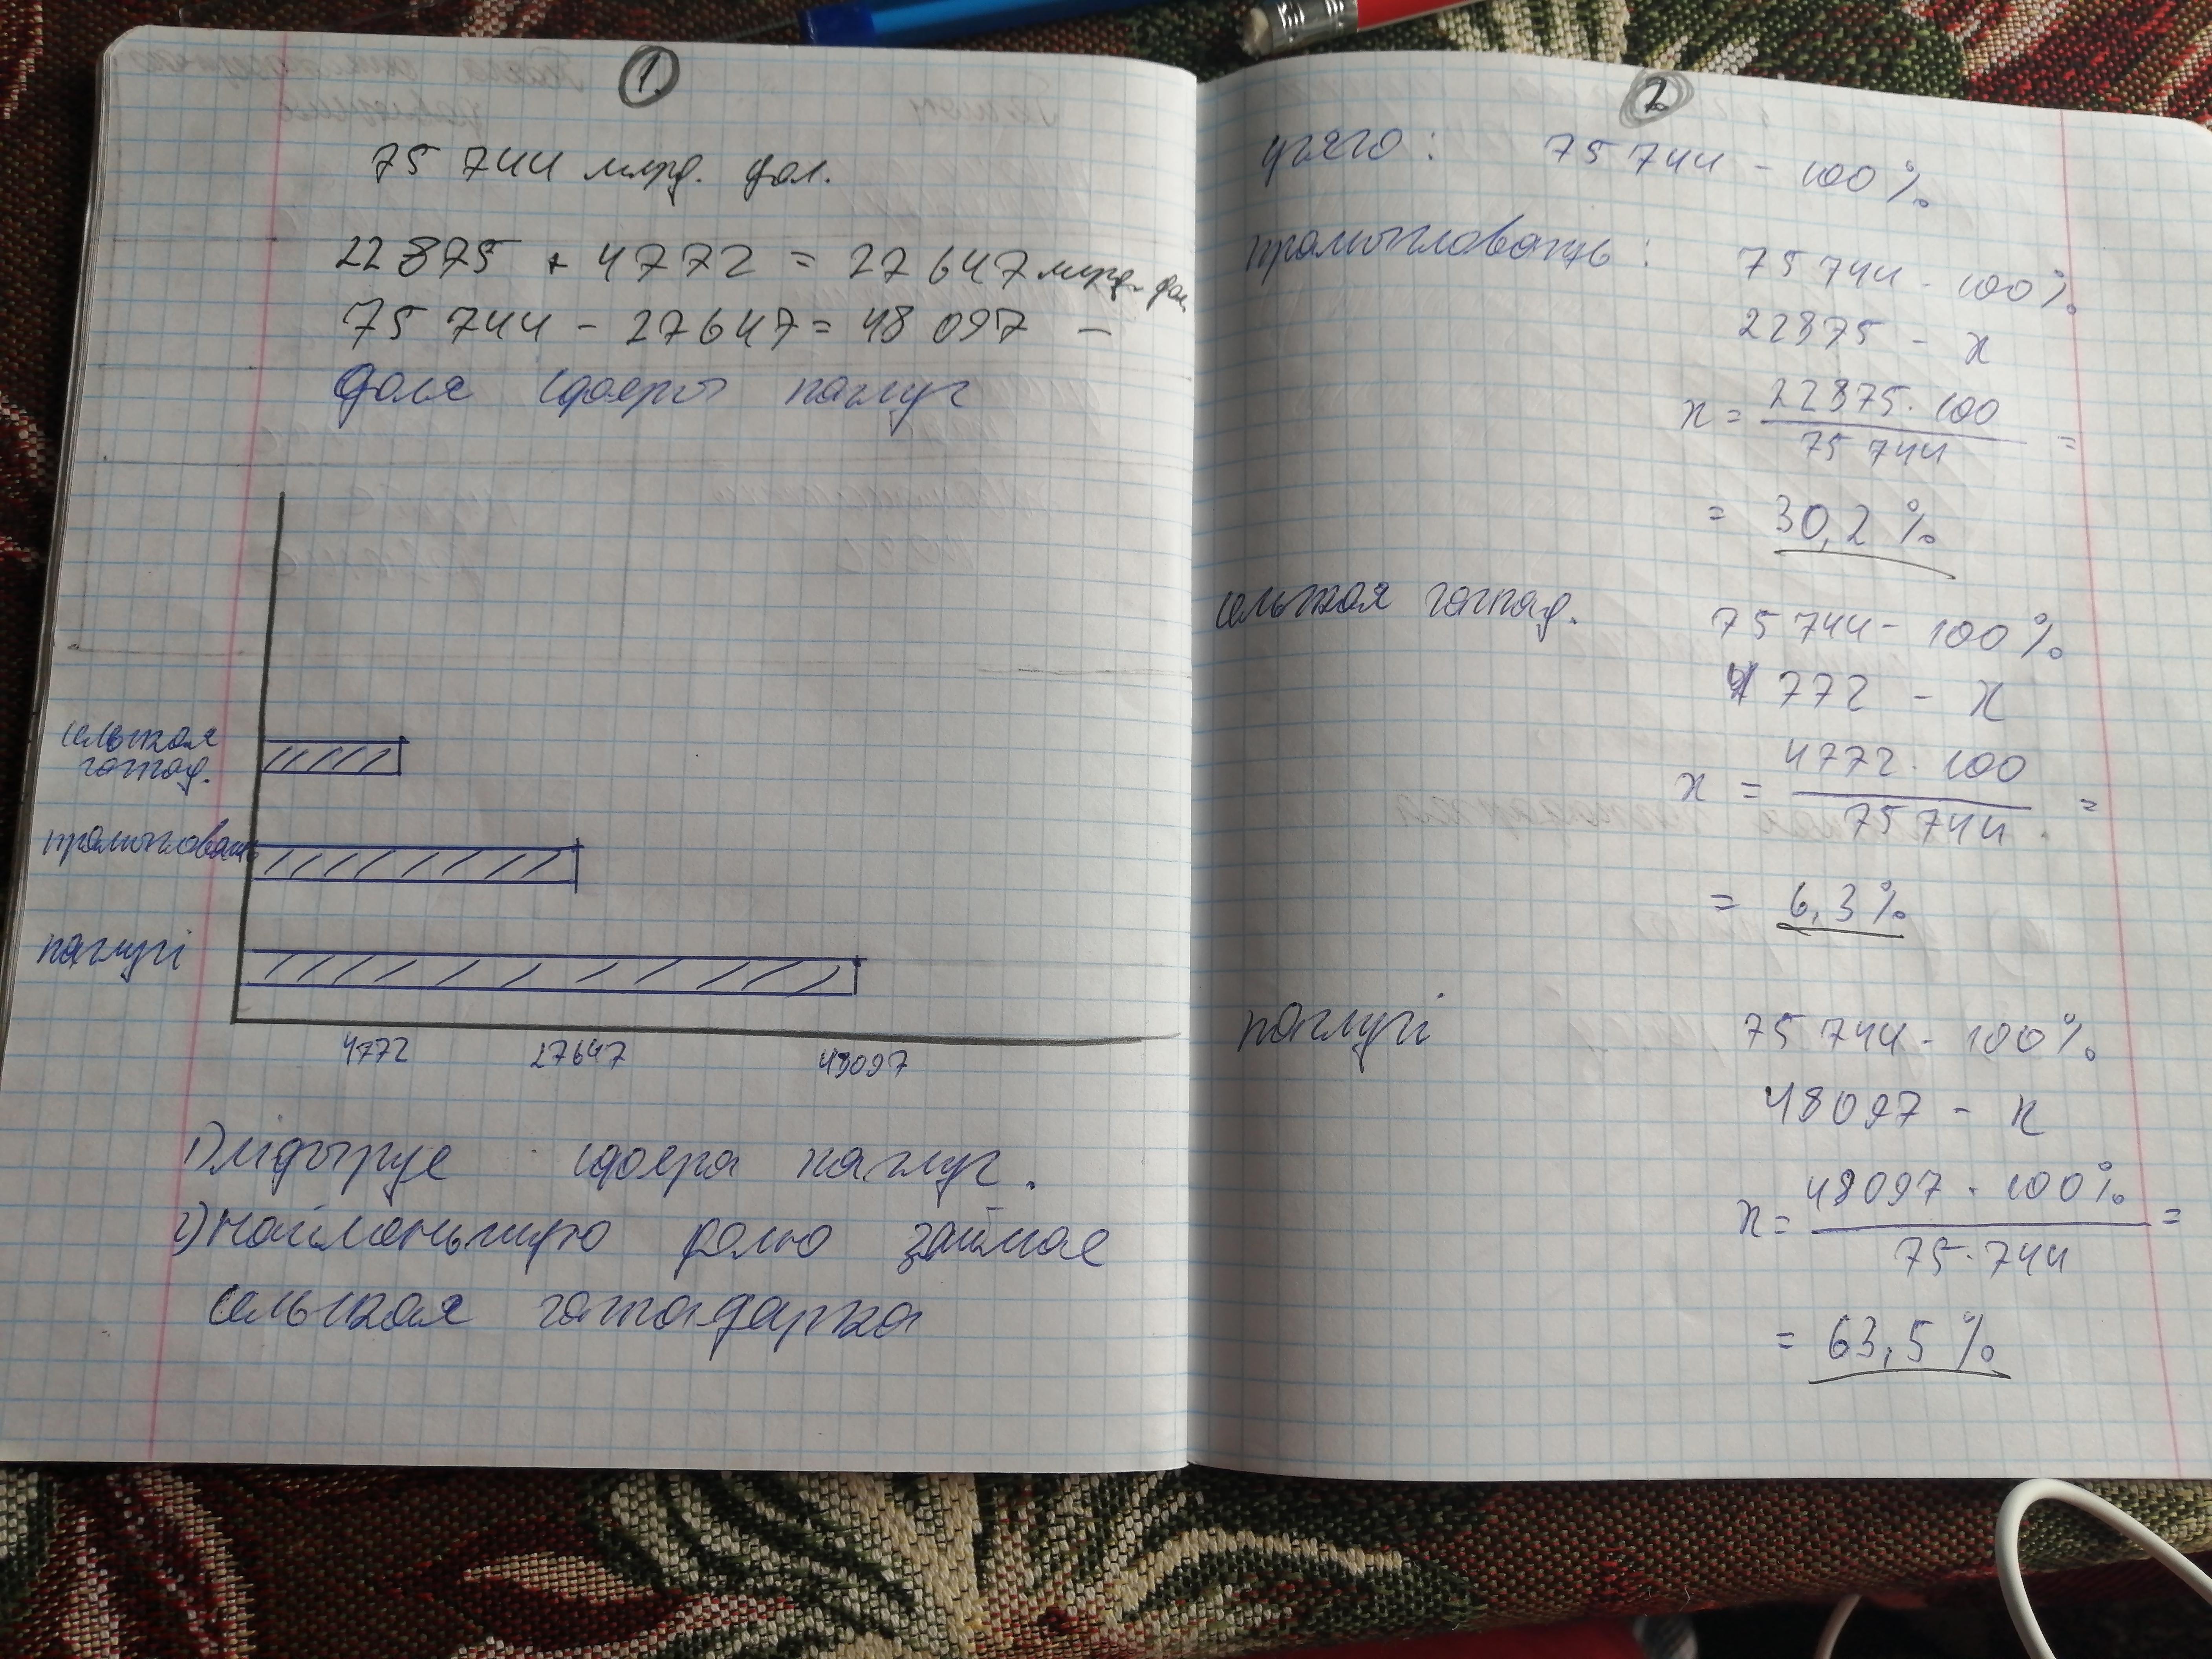 1.
75 744 млрд. дол.
22875 + 4772 = 27647 млрд. дол.
75 744 - 27647 = 48 097 -
доля сферы паслуг
сельская
гаспад.
прамысловасць
паслугі
4772 27647 48097
1) лідыруе сфера паслуг.
2) найменьшую ролю займае
сельская гаспадарка
2.
усяго: 75 744 - 100%
прамысловасць: 75 744 - 100%
22875 - х
х = 22875 · 100
75 744 =
= 30,2 %
сельская гаспад.
75 744 - 100%
4772 - х
х = 4772 · 100
75 744 =
= 6,3%
паслугі
75 744 - 100%
48097 - х
х = 48097 · 100%
75·744 =
= 63,5 %